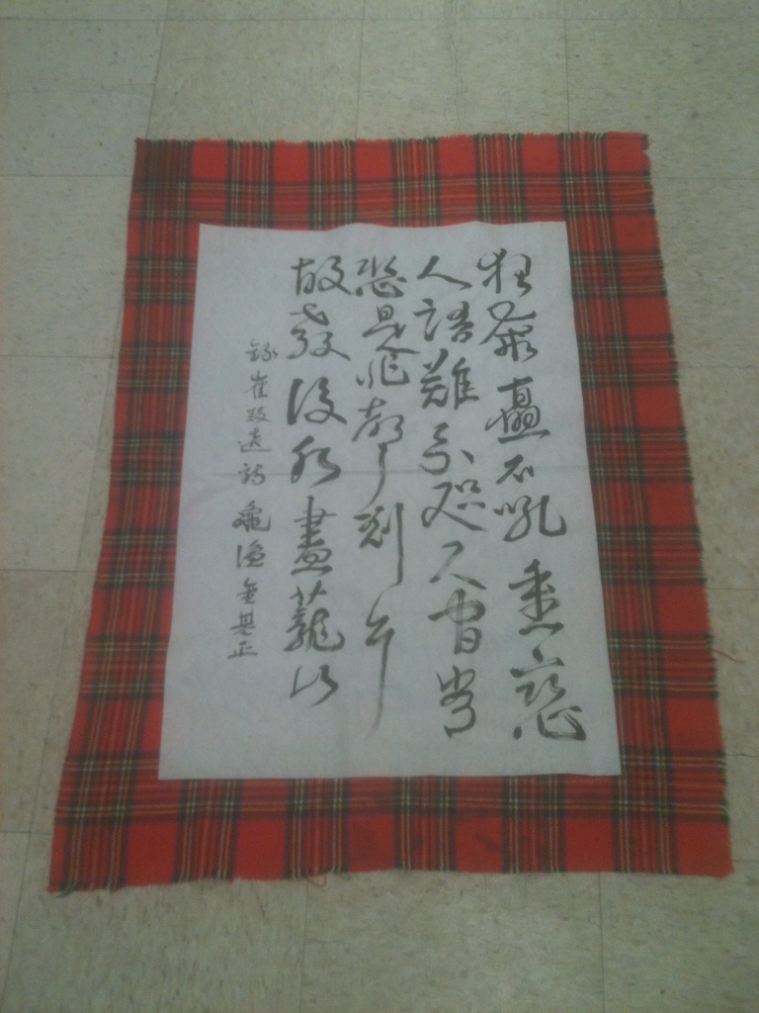 狂奔疊石吼重巒
人語難分咫尺間常
恐是非聲到耳
故教流水盡籠山
錄崔致遠詩 龜 金基正